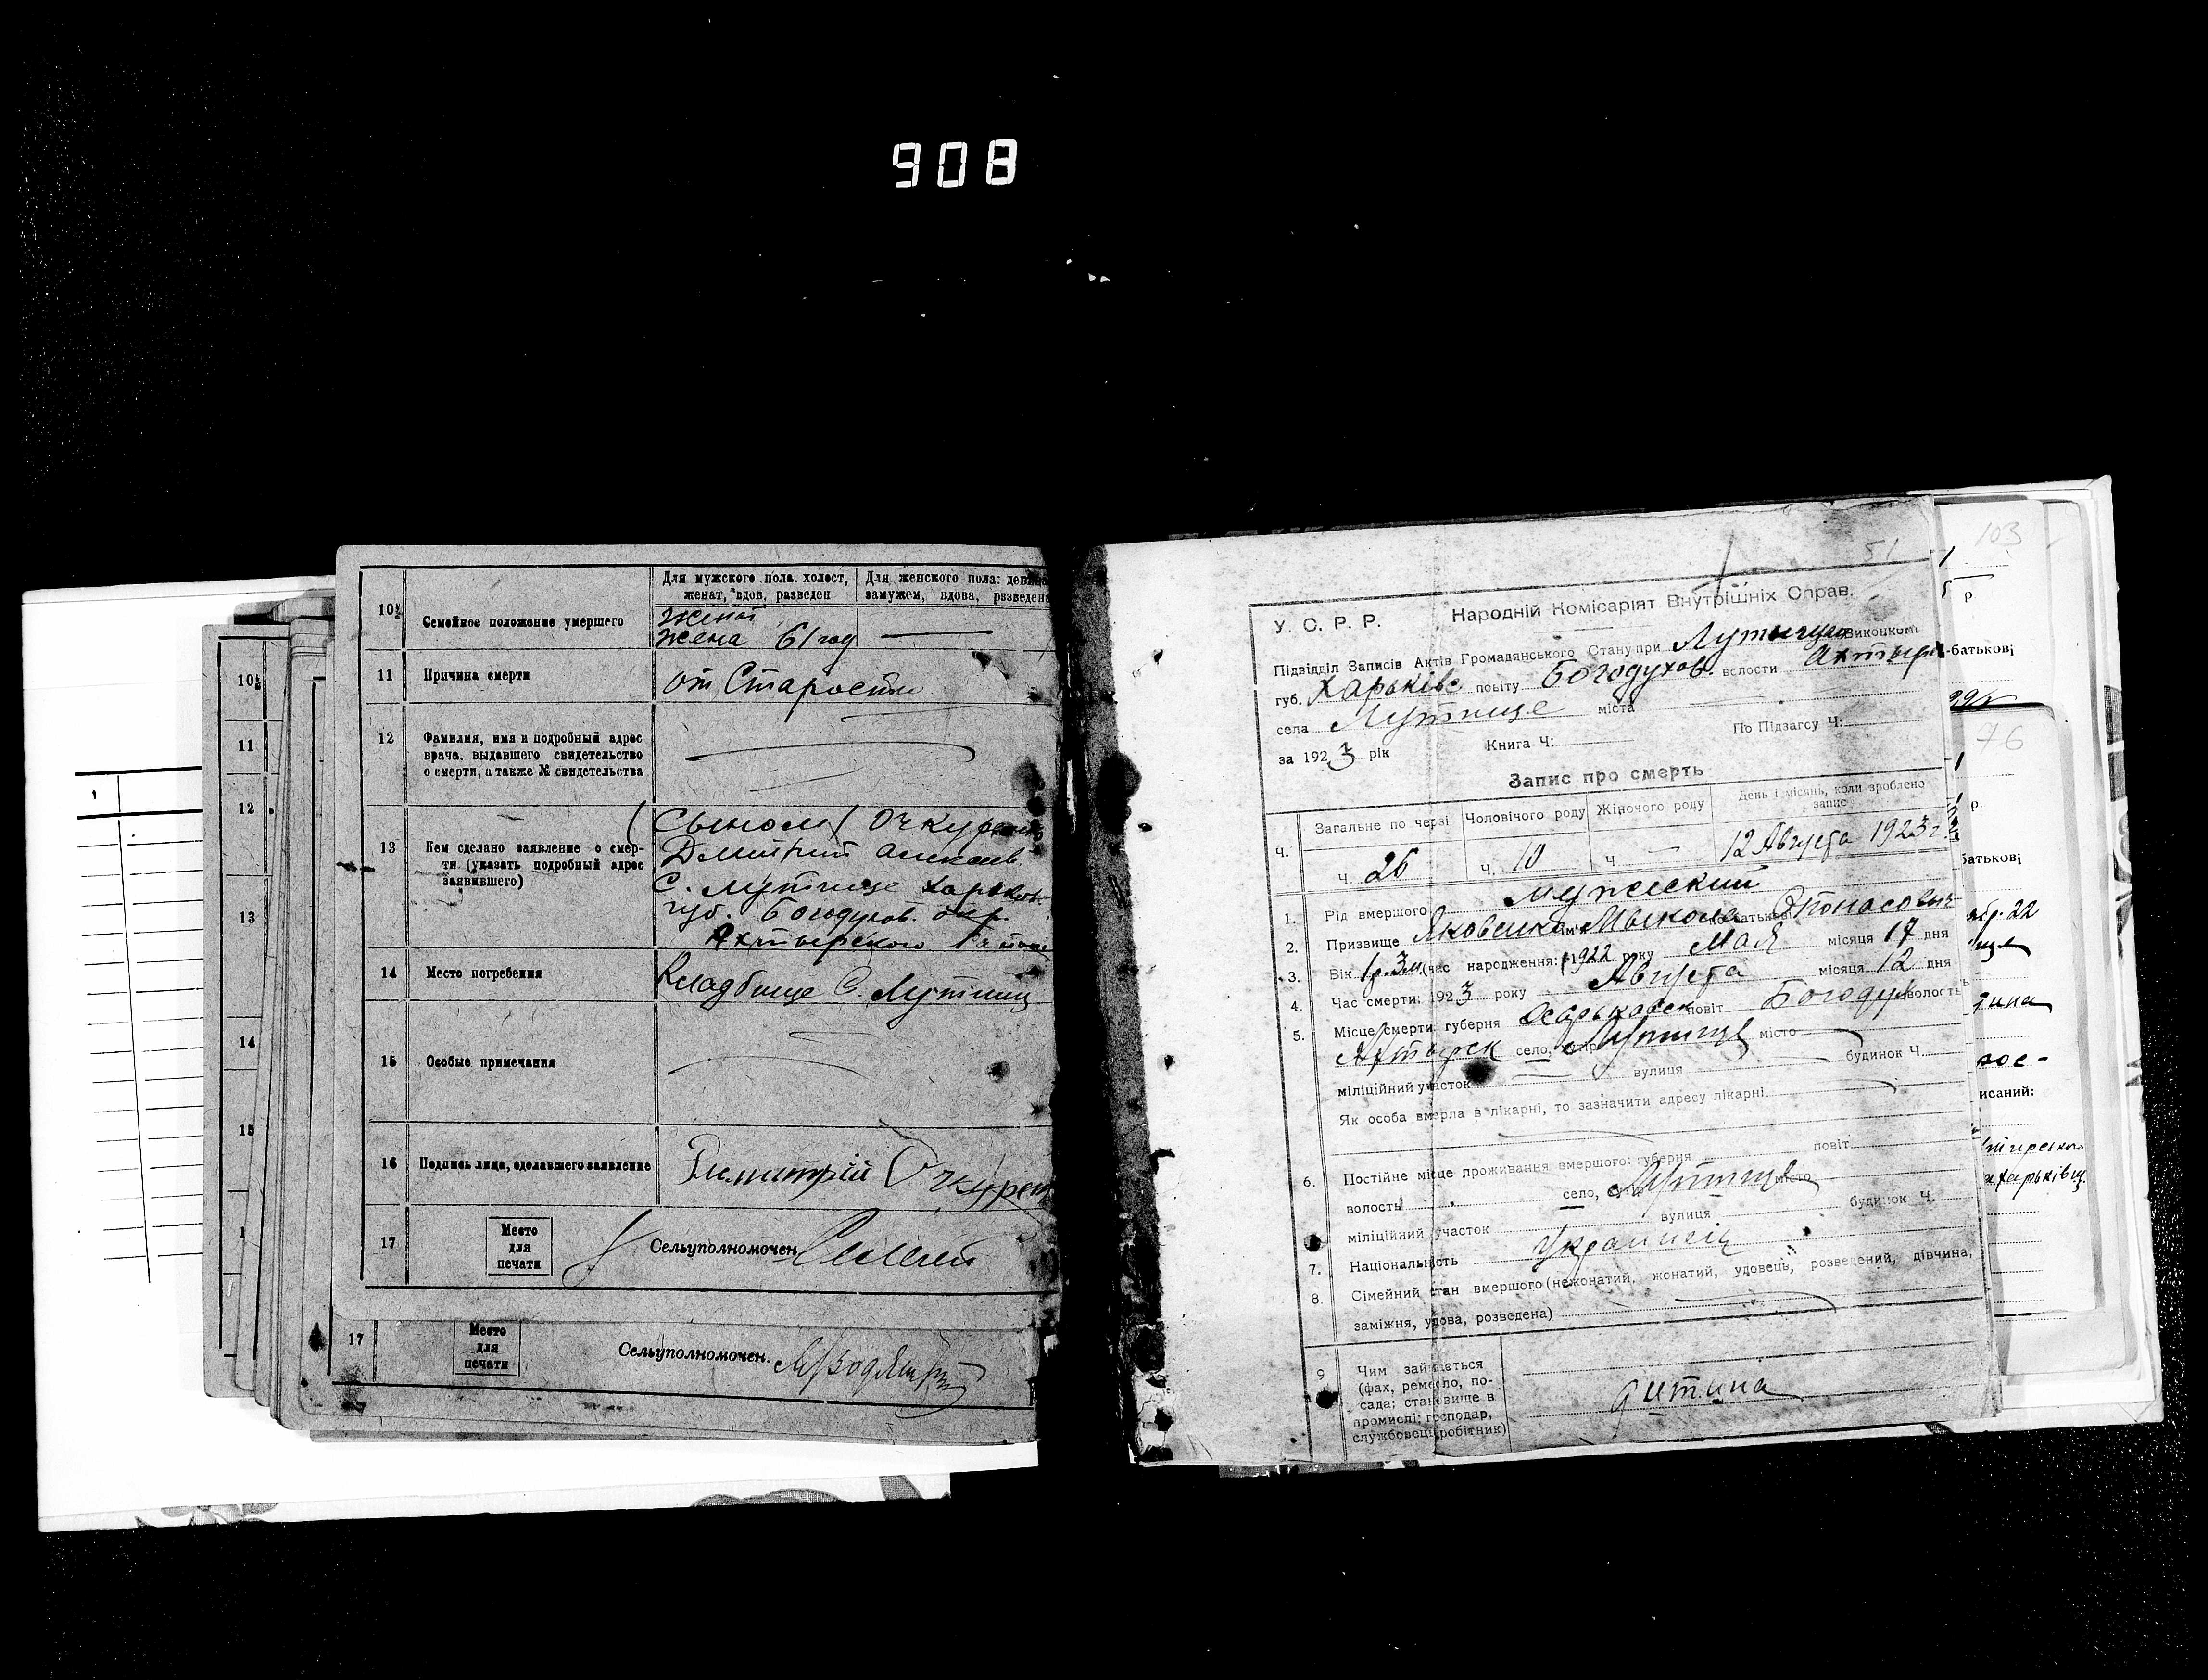 908
10½
11
12
13
14
15
1
17
Место
для
печати
Сельуполномочен.
10½
Семейное положение умершего
Для мужского пола. холост,
женат, вдов, разведен
Для женского пола: девица
замужем, вдова, разведена
женат
жена 61 год
11
Причина смерти
от Старости
12
Фамилия, имя и подробный адрес
врача, выдавшего свидетельство
о смерти, а также № свидетельства
13
Кем сделано заявление о смер-
ти (указать подробный адрес
заявившего)
(Сыном) Очкуренко
Дмитрий Алексеев.
С. Лутище Харьков.
губ. Богодухов. окр.
Ахтырского района
14
Место погребения
Кладбище С. Лутищ
15
Особые примечания
16
Подпись лица, сделавшего заявление
Димитрій Очкурен
17
Место
для
печати
Сельуполномочен.
51
У. С. Р. Р. Народній Комісаріят Внутрішніх Справ.
Підвідділ Записів Актів Громадянського Стану при Лутищан Виконкомі
губ. Харьківс повіту Богодухов. волости Ахтырк
села Лутище міста
за 1923 рік Книга Ч: По Підзагсу Ч:
Запис про смерть
Ч.
Загальне по черзі
Чоловічого роду
Жіночого роду
День і місяць, коли зроблено
запис
ч. 26
ч. 10
ч. —
12 Августа 1923 г.
1. Рід вмершого мужеский
2. Призвище Яковенко им'я Мыкола по батькові Опонасовыч
3. Вік 1 р. 3 м. (час народження: 1922 року Мая місяця 17 дня
4. Час смерти: 1923 року Августа місяця 12 дня
5. Місце смерти: губерня Харьковск повіт Богодух волость
Ахтырск село, Лутище місто
міліційний участок вулиця будинок Ч.
Як особа вмерла в лікарні, то зазначити адресу лікарні
6. Постійне місце проживання вмершого: губерня повіт
волость село, Лутище місто
міліційний участок вулиця будинок Ч.
7. Національність Украинец
8. Сімейний стан вмершого (нежонатий, жонатий, удовець, розведений, дівчина,
заміжня, удова, розведена)
9
Чим займається
(фах, ремесло, по-
сада; становище в
промислі; господар,
службовець, робітник)
дитина
103
р.
-батькові
76
р.
батькові
22
тина
исаний: